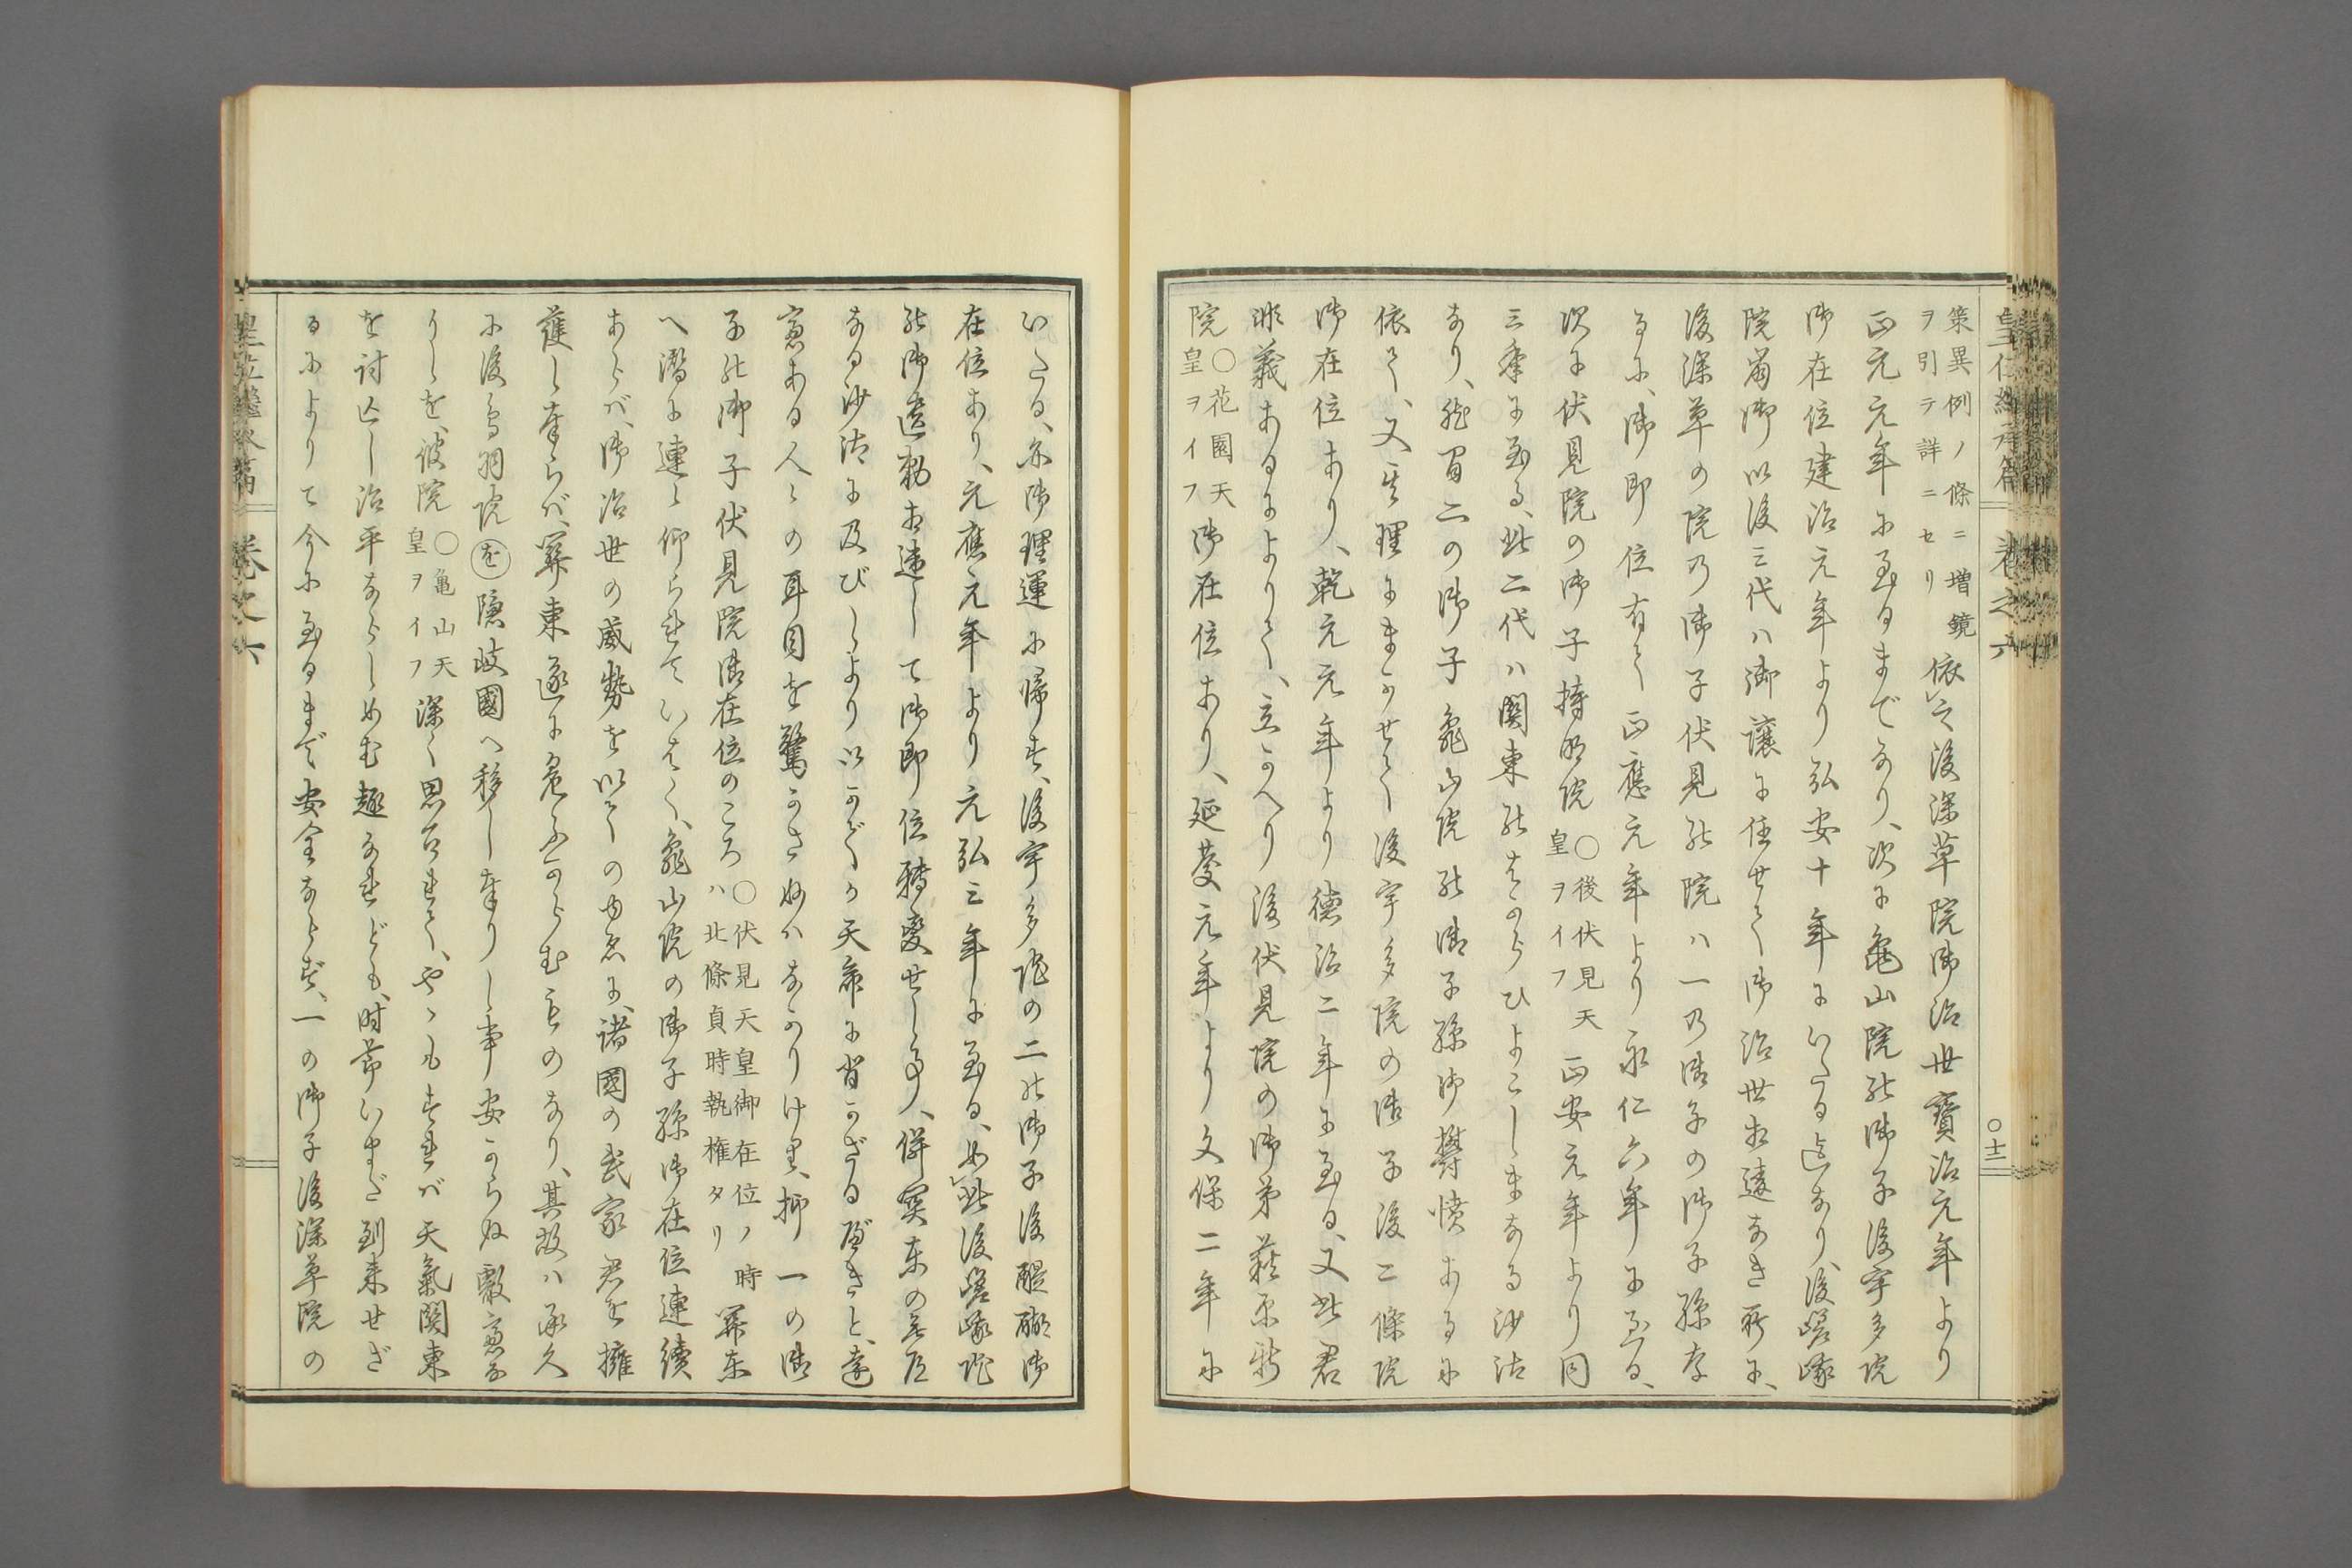 皇位繼承篇 卷之六 ○十二
策異例ノ條ニ増鏡
ヲ引テ詳ニセリ 依之後深草院御治世寶治元年より
正元元年に至るまでなり、次に龜山院の御子後宇多院
御在位建治元年より弘安十年にいたる迄なり、後嵯峨
院崩御以後三代ハ御讓に任せて御治世相違なき所に、
後深草の院乃御子伏見の院ハ一乃御子の御子孫な
るに、御即位有て正應元年より永仁六年に至る、
次に伏見院の御子持明院 ○後伏見天皇ヲイフ 正安元年より同
三年に至る、此二代ハ關東のはからひよこしまなる沙汰
なり、然間二の御子龜山院の御子孫御鬱憤あるに
依て、又其理にまかせて後宇多院の御子後二條院
御在位あり、乾元元年より德治二年に至る、又此君
非義あるによりて、立かへり後伏見院の御弟萩原新
院 ○花園天皇ヲイフ 御在位あり、延慶元年より文保二年に
いたる、亦御理運に帰す、後宇多院の二の御子後醍醐御
在位あり、元應元年より元弘三年に至る、如此後嵯峨院
の御遺勅相違して御即位轉變せし事、併關東の無道
なる沙汰に及びしより以かでか天命に背かざるべきと、遠
慮ある人々の耳目を驚かさぬハなかりけり、抑一の御
子の御子伏見院御在位のころ ○伏見天皇御在位ノ時ハ北條貞時執権タリ 關東
へ潜に連々仰られていはく、龜山院の御子孫御在位連續
あらバ、御治世の威勢を以ての由ゑに、諸國の武家君を擁
護し奉らバ、關東遂に危ふからむものなり、其故ハ承久
に後鳥羽院を隱岐國へ移し奉りし事安からぬ叡慮な
りしを、彼院 ○亀山天皇ヲイフ 深く思召れて、やゝもすれバ天氣關東
を討亡し治平ならしめむ趣なれども、時節いまだ到来せざ
るによりて今に至るまで安全ならず、一の御子後深草院の
皇位繼承篇 卷之六